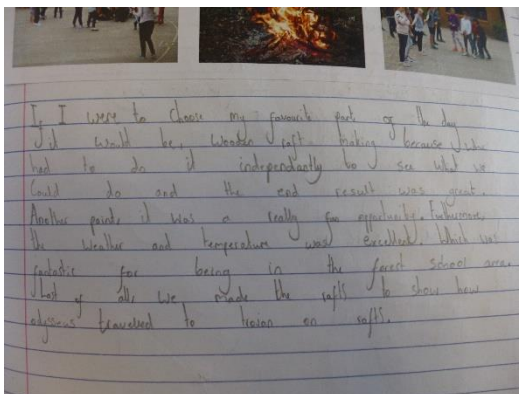 If I were to choose my favourite part of the day
it would be, wooden raft making because we
had to do it independantly to see what we
could do and the end result was great.
Another point, it was a really fun opportunity. Furthermore,
the weather and temperature was excellent. Which was
fantastic for being in the forest school area.
of all, we made the rafts to show how
odysseus travelled to troian on rafts.